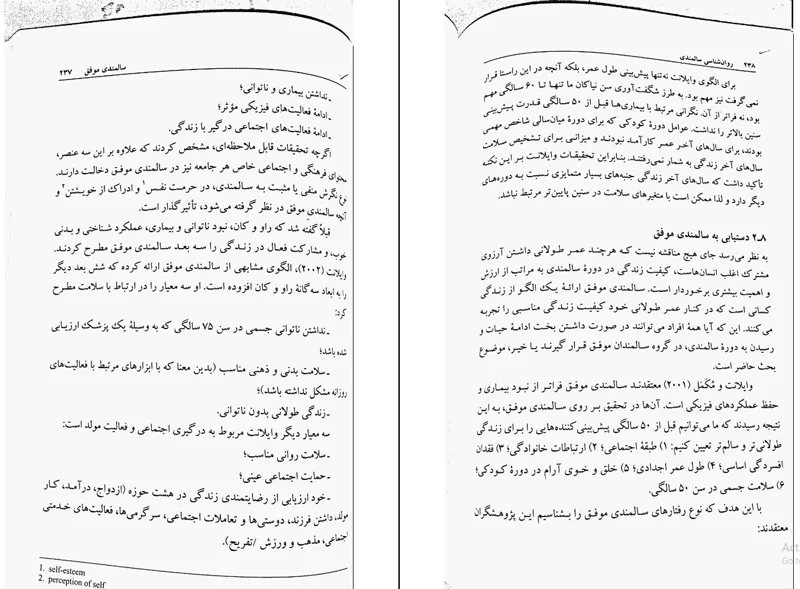 سالمندی موفق ۲۳۷
ـ نداشتن بیماری و ناتوانی؛
ـ ادامهٔ فعالیت‌های فیزیکی مؤثر؛
ـ ادامهٔ فعالیت‌های اجتماعی درگیر با زندگی.
اگرچه تحقیقات قابل ملاحظه‌ای، مشخص کردند که علاوه بر این سه عنصر،
محتوای فرهنگی و اجتماعی خاص هر جامعه نیز در سالمندی موفق دخالت دارند.
نوع نگرش منفی یا مثبت به سالمندی، در حرمت نفس۱ و ادراک از خویشتن۲ و
آنچه سالمندی موفق در نظر گرفته می‌شود، تأثیرگذار است.
قبلاً گفته شد که راو و کان، نبود ناتوانی و بیماری، عملکرد شناختی و بدنی
خوب، و مشارکت فعال در زندگی را سه بعد سالمندی موفق مطرح کردند.
وایلانت (۲۰۰۲)، الگوی مشابهی از سالمندی موفق ارائه کرده که شش بعد دیگر
را به ابعاد سه‌گانهٔ راو و کان افزوده است. او سه معیار را در ارتباط با سلامت مطرح
کرد:
ـ نداشتن ناتوانی جسمی در سن ۷۵ سالگی که به وسیلهٔ یک پزشک ارزیابی
شده باشد؛
ـ سلامت بدنی و ذهنی مناسب (بدین معنا که با ابزارهای مرتبط با فعالیت‌های
روزانه مشکل نداشته باشد)؛
ـ زندگی طولانی بدون ناتوانی.
سه معیار دیگر وایلانت مربوط به درگیری اجتماعی و فعالیت مولد است:
ـ سلامت روانی مناسب؛
ـ حمایت اجتماعی عینی؛
ـ خود ارزیابی از رضایتمندی زندگی در هشت حوزه (ازدواج، درآمد، کار
مولد، داشتن فرزند، دوستی‌ها و تعاملات اجتماعی، سرگرمی‌ها، فعالیت‌های خدمتی
اجتماعی، مذهب و ورزش /تفریح).
1. self-esteem
2. perception of self
۲۳۸ روان‌شناسی سالمندی
برای الگوی وایلانت نه‌تنها پیش‌بینی طول عمر، بلکه آنچه در این راستا قرار
نمی‌گرفت نیز مهم بود. به طرز شگفت‌آوری سن نیاکان ما تنها تا ۶۰ سالگی مهم
بود، نه فراتر از آن. نگرانی مرتبط با بیماری‌ها قبل از ۵۰ سالگی قدرت پیش‌بینی
سنین بالاتر را نداشت. عوامل دورهٔ کودکی که برای دورهٔ میان‌سالی شاخص مهمی
بودند، برای سال‌های آخر عمر کارآمد نبودند و میزانی برای تشخیص سلامت
سال‌های آخر زندگی به شمار نمی‌رفتند. بنابراین تحقیقات وایلانت بر این نکته
تأکید داشت که سال‌های آخر زندگی جنبه‌های بسیار متمایزی نسبت به دوره‌های
دیگر دارد و لذا ممکن است با متغیرهای سلامت در سنین پایین‌تر مرتبط نباشد.
۸ـ۲ دستیابی به سالمندی موفق
به نظر می‌رسد جای هیچ مناقشه نیست که هرچند عمر طولانی داشتن آرزوی
مشترک اغلب انسان‌هاست، کیفیت زندگی در دورهٔ سالمندی به مراتب از ارزش
و اهمیت بیشتری برخوردار است. سالمندی موفق ارائهٔ یک الگو از زندگی
کسانی است که در کنار عمر طولانی خود کیفیت زندگی مناسبی را تجربه
می‌کنند. این که آیا همهٔ افراد می‌توانند در صورت داشتن بخت ادامهٔ حیات و
رسیدن به دورهٔ سالمندی، در گروه سالمندان موفق قرار گیرند یا خیر، موضوع
بحث حاضر است.
وایلانت و مُکَمَل (۲۰۰۱) معتقدند سالمندی موفق فراتر از نبود بیماری و
حفظ عملکردهای فیزیکی است. آن‌ها در تحقیق بر روی سالمندی موفق، به این
نتیجه رسیدند که ما می‌توانیم قبل از ۵۰ سالگی پیش‌بینی‌کننده‌هایی را برای زندگی
طولانی‌تر و سالم‌تر تعیین کنیم: ۱) طبقهٔ اجتماعی؛ ۲) ارتباطات خانوادگی؛ ۳) فقدان
افسردگی اساسی؛ ۴) طول عمر اجدادی؛ ۵) خلق و خوی آرام در دورهٔ کودکی؛
۶) سلامت جسمی در سن ۵۰ سالگی.
با این هدف که نوع رفتارهای سالمندی موفق را بشناسیم این پژوهشگران
معتقدند:
Act
Go t